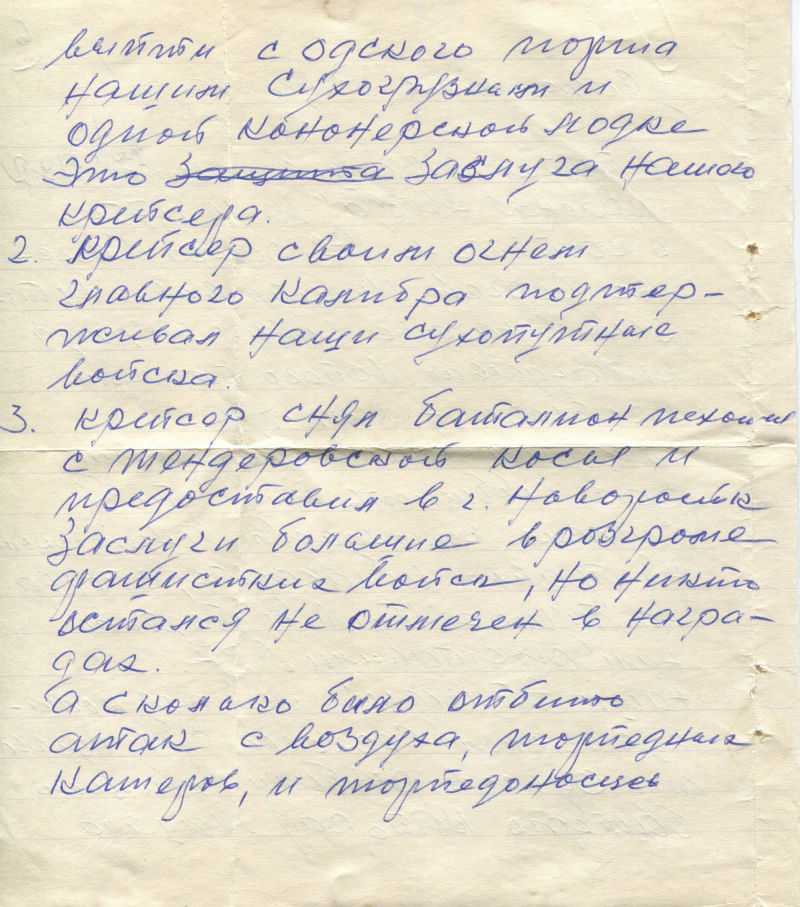 выйти с одского порта
нашим сухогрузнам и
одной кононерской лодке
Это Защита заслуга нашого
крейсера.
2. крейсер своим огнем
главного калибра подтер-
живал наши сухопутные
войска.
3. крейсор снял баталион пехоты
с тендеровской косы и
предоставил в г. Новоросийск
заслуги большие в розгроме
фашистких войск, но никто
остался не отмечен в награ-
дах.
а сколько было отбито
атак с воздуха, торпедных
катеров, и торпедоносцев